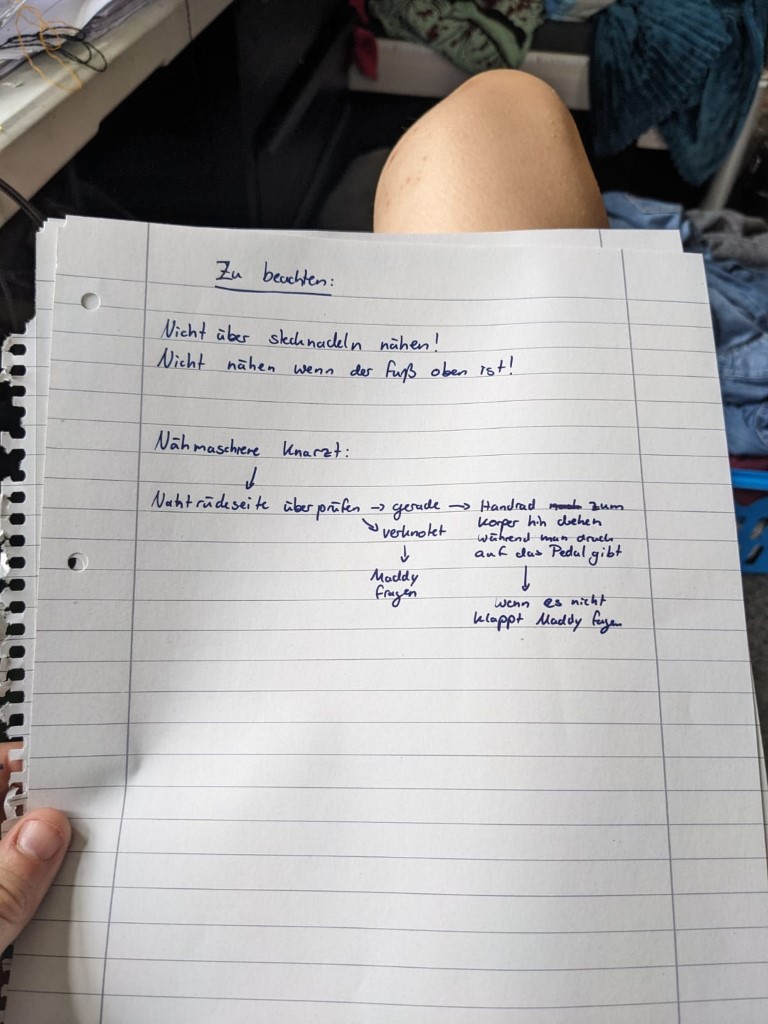 Zu beachten:
Nicht über stecknadeln nähen!
Nicht nähen wenn der Fuß oben ist!
Nähmaschiene knarzt:
↓
Nahtrückseite überprüfen → gerade → Handrad zum
Körper hin drehen
während man druck
auf das Pedal gibt
↓
wenn es nicht
klappt Maddy fragen
↘ verknotet
↓
Maddy
fragen